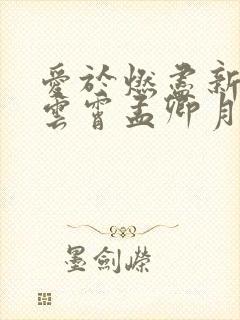 愛於燃盡新
雲霄孟卿月
墨劍嶸